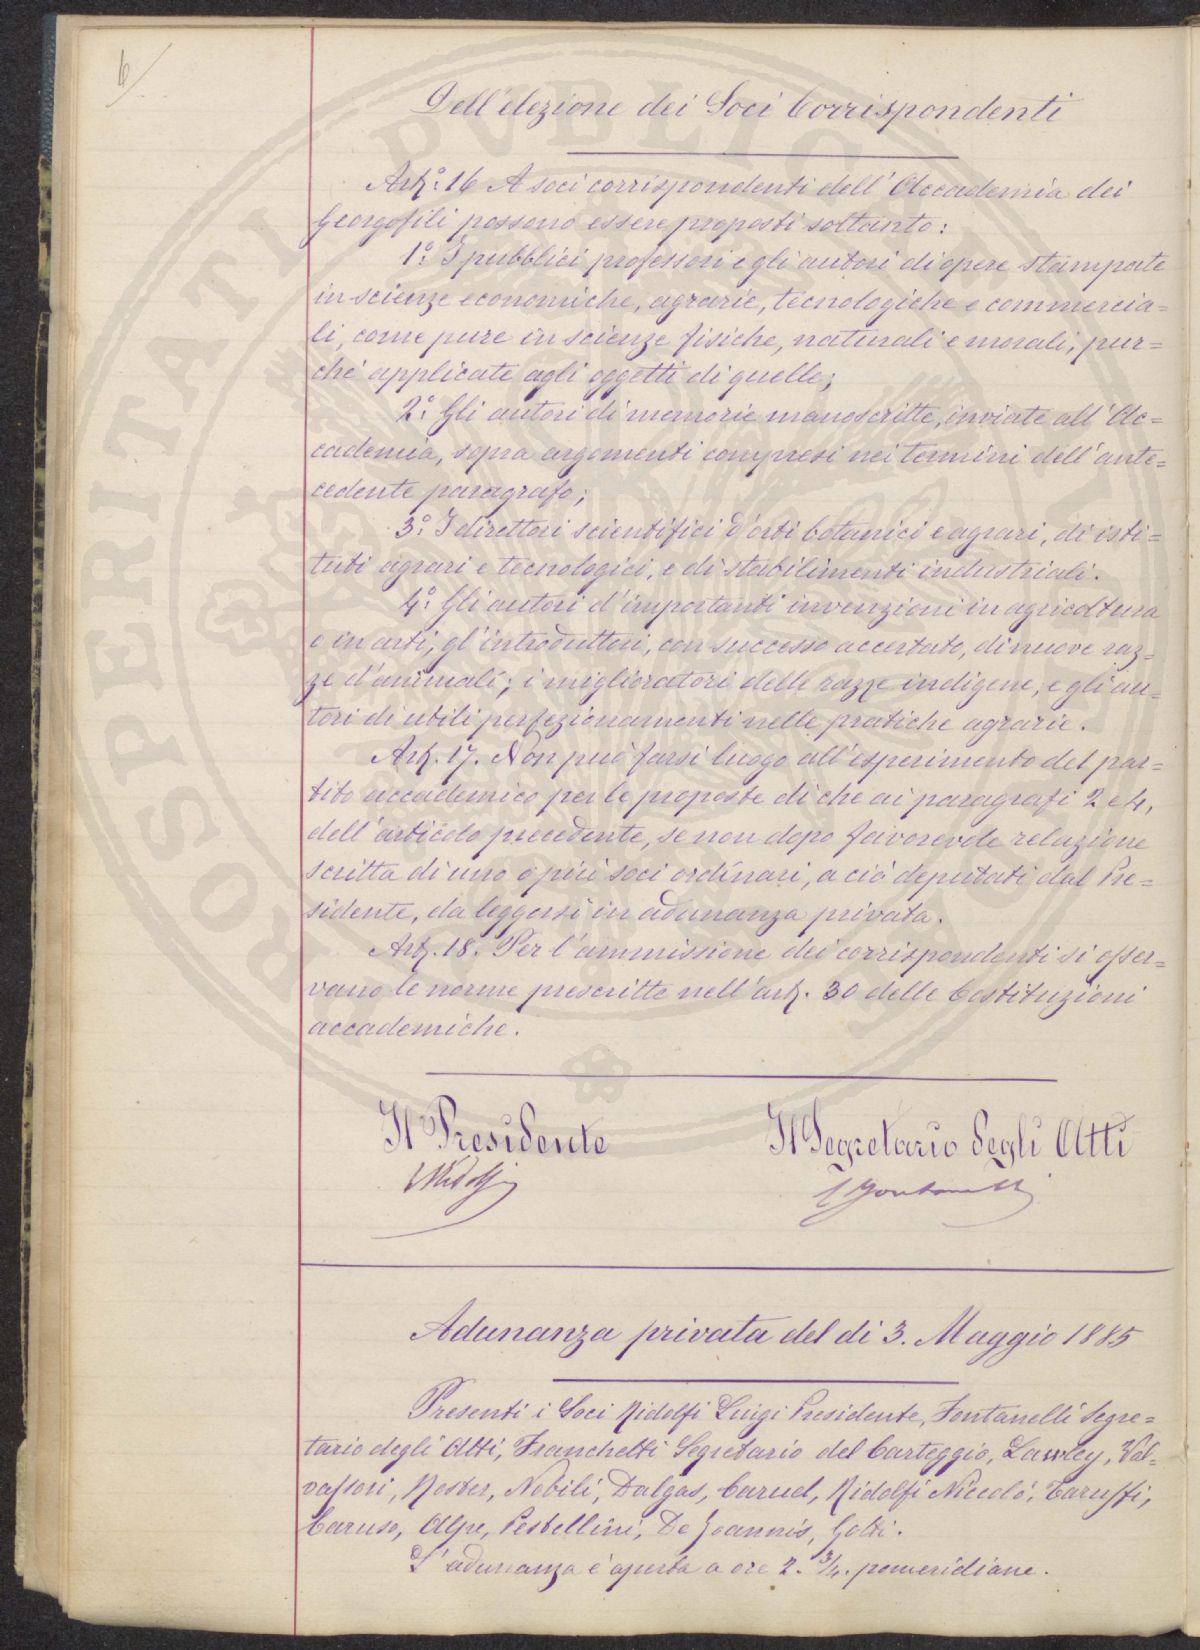 6
Dell'elezione dei Soci Corrispondenti
Art.° 16 A soci corrispondenti dell'Accademia dei
Georgofili possono essere proposti soltanto:
1.° I pubblici professori e gli autori di opere stampate
in scienze economiche, agrarie, tecnologiche e commercia=
li, come pure in scienze fisiche, naturali e morali, pur=
chè applicate agli oggetti di quelle;
2.° Gli autori di memorie manoscritte, inviate all'Ac=
cademia, sopra argomenti compresi nei termini dell'ante=
cedente paragrafo;
3.° I direttori scientifici d'orti botanici e agrari, di isti=
tuti agrari e tecnologici, e di stabilimenti industriali.
4.° Gli autori d'importanti invenzioni in agricoltura
o in arti; gl'introduttori, con successo accertato, di nuove raz=
ze d'animali; i miglioratori delle razze indigene, e gli au=
tori di utili perfezionamenti nelle pratiche agrarie.
Art. 17. Non può farsi luogo all'esperimento del par=
tito accademico per le proposte di che ai paragrafi 2 e 4,
dell'articolo precedente, se non dopo favorevole relazione
scritta di uno o più soci ordinari, a ciò deputati dal Pre=
sidente, da leggersi in adunanza privata.
Art. 18. Per l'ammissione dei corrispondenti si osser=
vano le norme prescritte nell'art. 30 delle Costituzioni
accademiche.
Il Presidente Il Segretario degli Atti
LRidolfi Fontanelli
Adunanza privata del dì 3. Maggio 1885
Presenti i Soci Ridolfi Luigi Presidente, Fontanelli Segre=
tario degli Atti, Franchetti Segretario del Carteggio, Lawley, Val=
vassori, Roster, Nobili, Dalgas, Caruel, Ridolfi Niccolò, Taruffi,
Caruso, Alpe, Pestellini, De Joannis, Gotti.
L'adunanza è aperta a ore 2. 3/4. pomeridiane.
PROSPERITATI PVBLICAE